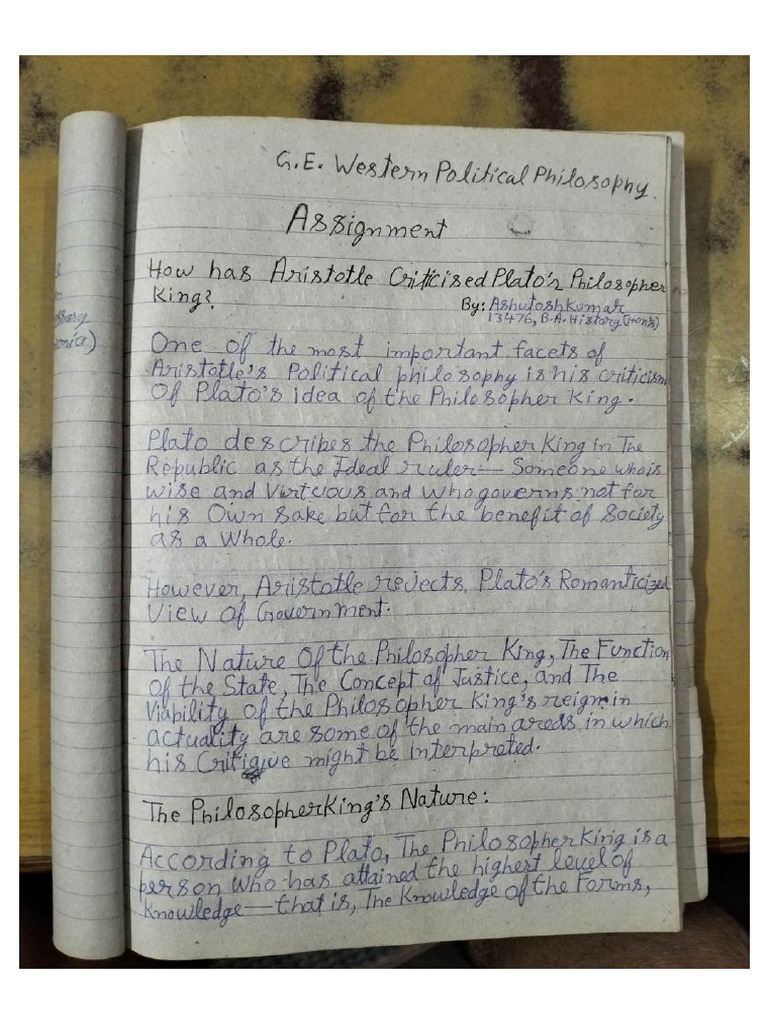 G.E. Western Political Philosophy.
Assignment
How has Aristotle Criticised Plato's Philosopher
King?
By: Ashutosh Kumar
13476, B.A. History (Hons)
One of the most important facets of
Aristotle's Political philosophy is his criticism
Of Plato's idea of the Philosopher King.
Plato describes the Philosopher King in The
Republic as the Ideal ruler— Someone who is
wise and Virtuous and who governs not for
his Own sake but for the benefit of Society
as a Whole.
However, Aristotle rejects Plato's Romanticized
View of Government.
The Nature Of the Philosopher King, The Function
of the State, The Concept of Justice, and The
Viability of the Philosopher King's reign in
actuality are some of the main areas in which
his Critique might be interpreted.
The Philosopher King's Nature:
According to Plato, The Philosopher King is a
person who has attained the highest level of
Knowledge—that is, The Knowledge of the Forms,